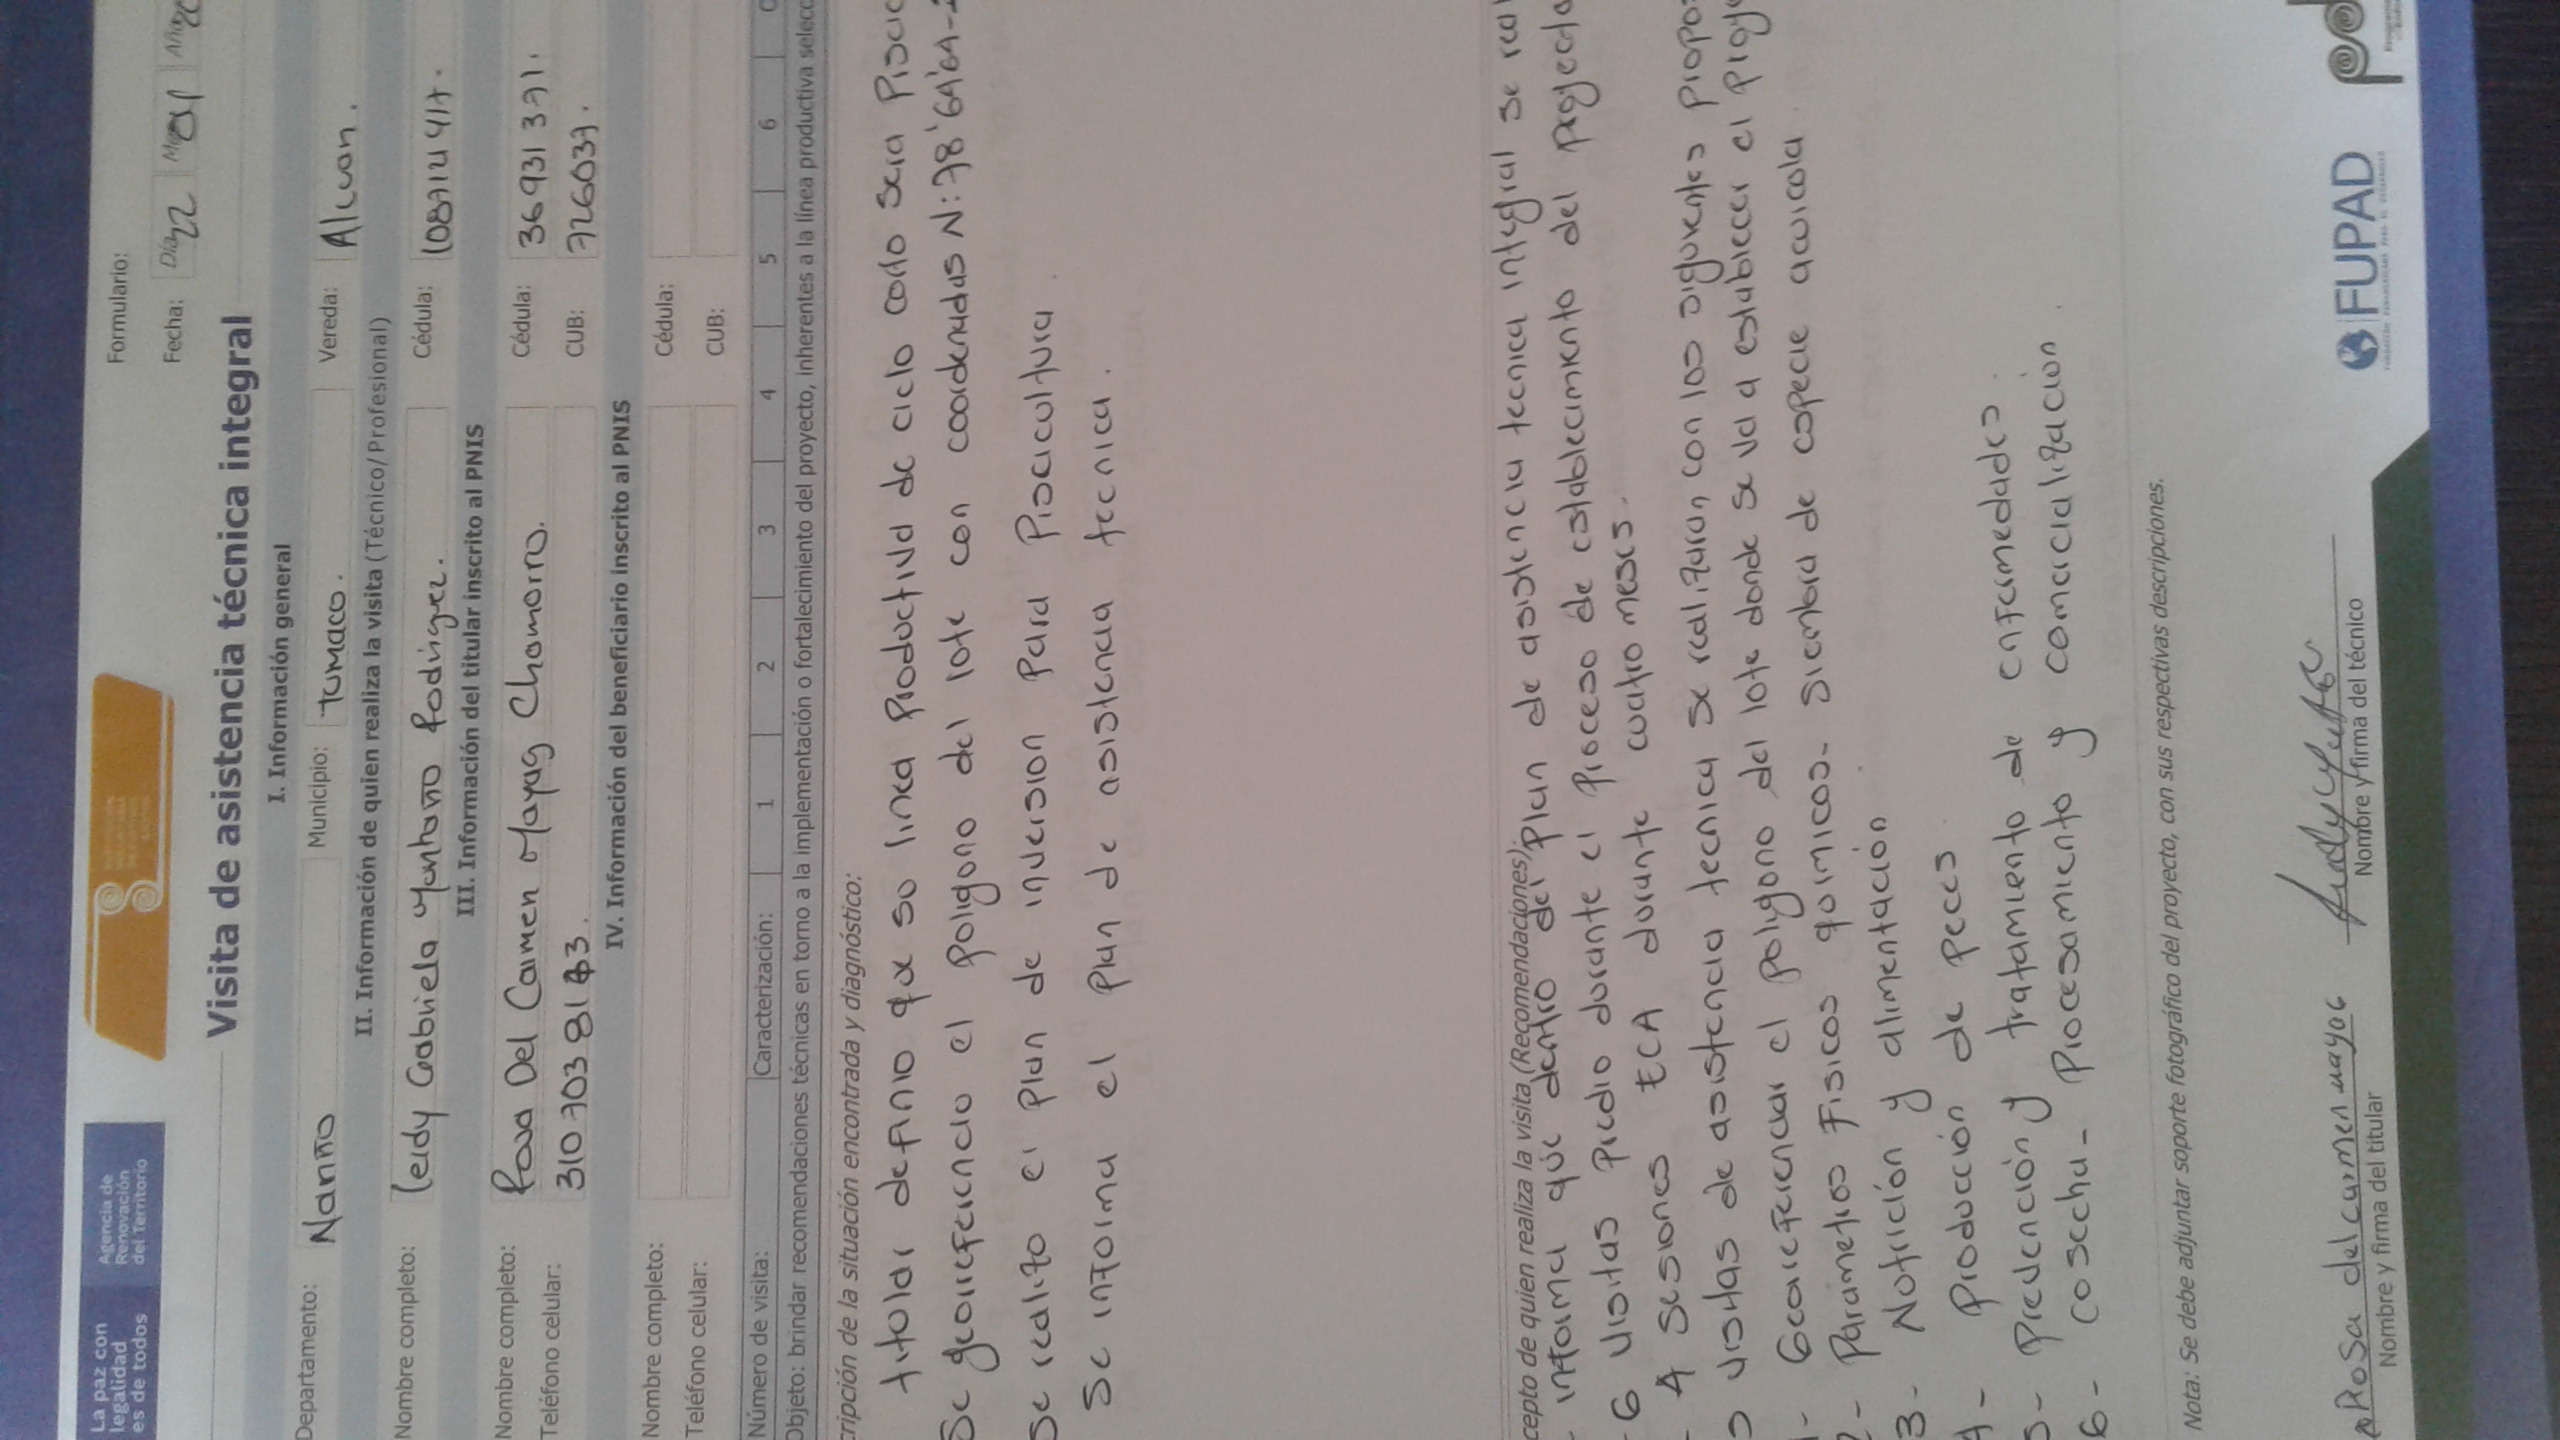 La paz con
legalidad
es de todos
Agencia de
Renovación
del Territorio
Formulario:
Fecha: Día 22 Mes 01 Año
Visita de asistencia técnica integral
I. Información general
Departamento: Nariño Municipio: tumaco. Vereda: Alcuan.
II. Información de quien realiza la visita (Técnico/Profesional)
Nombre completo: leidy Gabriela Montaño Rodriguez. Cédula:
III. Información del titular inscrito al PNIS
Nombre completo: Rosa Del Carmen Mayag Chamorro. Cédula: 36 931 371.
Teléfono celular: CUB: 726037.
IV. Información del beneficiario inscrito al PNIS
Nombre completo: Cédula:
Teléfono celular: CUB:
Número de visita: Caracterización: 1 2 3 4 5 6
Objeto: brindar recomendaciones técnicas en torno a la implementación o fortalecimiento del proyecto, inherentes a la línea productiva selecc
cripción de la situación encontrada y diagnóstico:
titular definio que su linea Productiva de ciclo corto sera Piscic
Se georeferencio el poligono del lote con coordenadas N:
Se realizo el Plan de inversion Para Piscicultura.
Se informa el plan de asistencia tecnica.
cepto de quien realiza la visita (Recomendaciones):
informa que dentro del Plan de asistencia tecnica integral se real
6 visitas Predio durante el Proceso de establecimiento del proyecto
- 4 sesiones ECA durante cuatro meses.
visitas de asistencia tecnica se realizaran con los siguientes Propo
1- Georeferenciar el poligono del lote donde se va a establecer el Proye
2- Parametros Fisicos quimicos. siembra de especie acuicola.
3- Nutrición y alimentación
4- Producción de Peces
5- Prevención y tratamiento de enfermedades.
6- cosecha- Procesamiento y comercialización.
Nota: Se debe adjuntar soporte fotográfico del proyecto, con sus respectivas descripciones.
Rosa del carmen mayag
Nombre y firma del titular
Nombre y firma del técnico
FUPAD